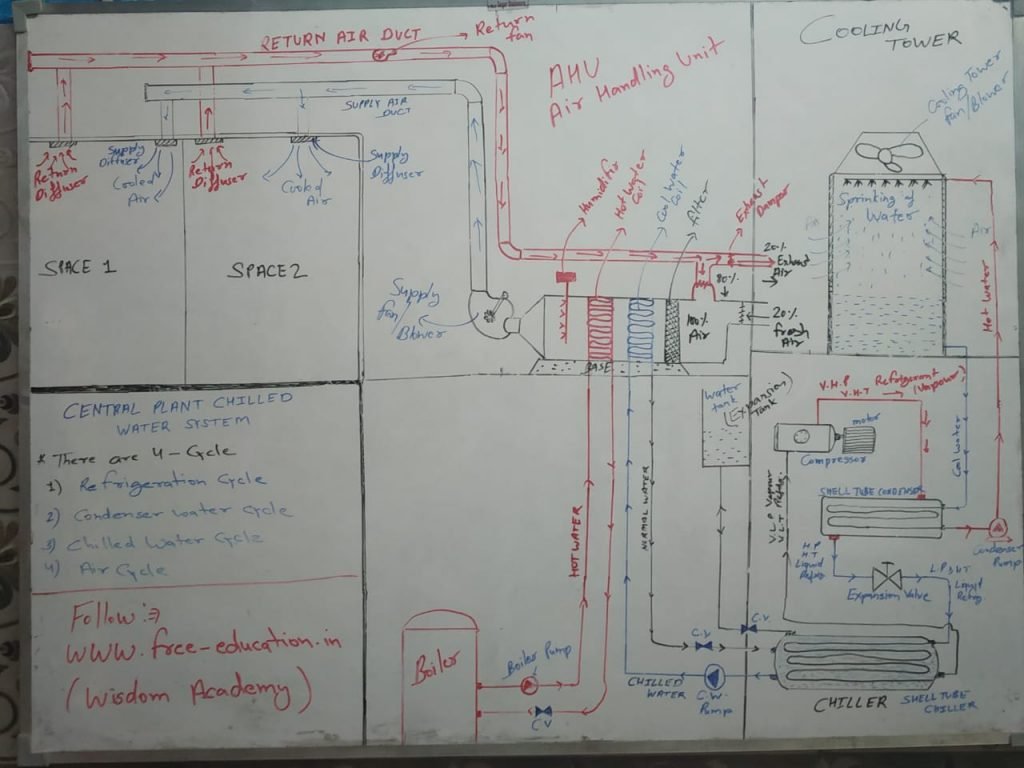 RETURN AIR DUCT
Return
fan
AHU
Air Handling Unit
COOLING
TOWER
Cooling Tower
Fan/Blower
SUPPLY AIR
DUCT
Supply
Diffuser
Return
Diffuser
Cooled
Air
Return
Diffuser
Cooled
Air
Supply
Diffuser
SPACE 1
SPACE 2
Supply
fan/
Blower
Humidifir
Hot water
Coil
Cool water
Coil
filter
Exhaust
Damper
20%
Exhaust
Air
80%
100%
Air
20%
fresh
Air
BASE
Sprinking of
Water
Air
Air
Hot water
Cool water
CENTRAL PLANT CHILLED
WATER SYSTEM
* There are 4-Cycle
1) Refrigeration Cycle
2) Condenser water Cycle
3) Chilled Water Cycle
4) Air Cycle
Follow:⇒
www.free-education.in
(Wisdom Academy)
Water
tank
(Expansion
Tank)
V.H.P
V.H.T
Refrigerant
(Vapour)
motor
Compressor
SHELL TUBE CONDENSER
Condenser
Pump
H.P
H.T
Liquid
Refrig
Expansion Valve
L.P & L.T
Liquid
Refrig.
V.L.P Vapour
V.L.T Refrig.
HOT WATER
NORMAL WATER
Boiler
Boiler Pump
C.V
C.V
C.V
CHILLED
WATER
C.W.
Pump
CHILLER
SHELL TUBE
CHILLER